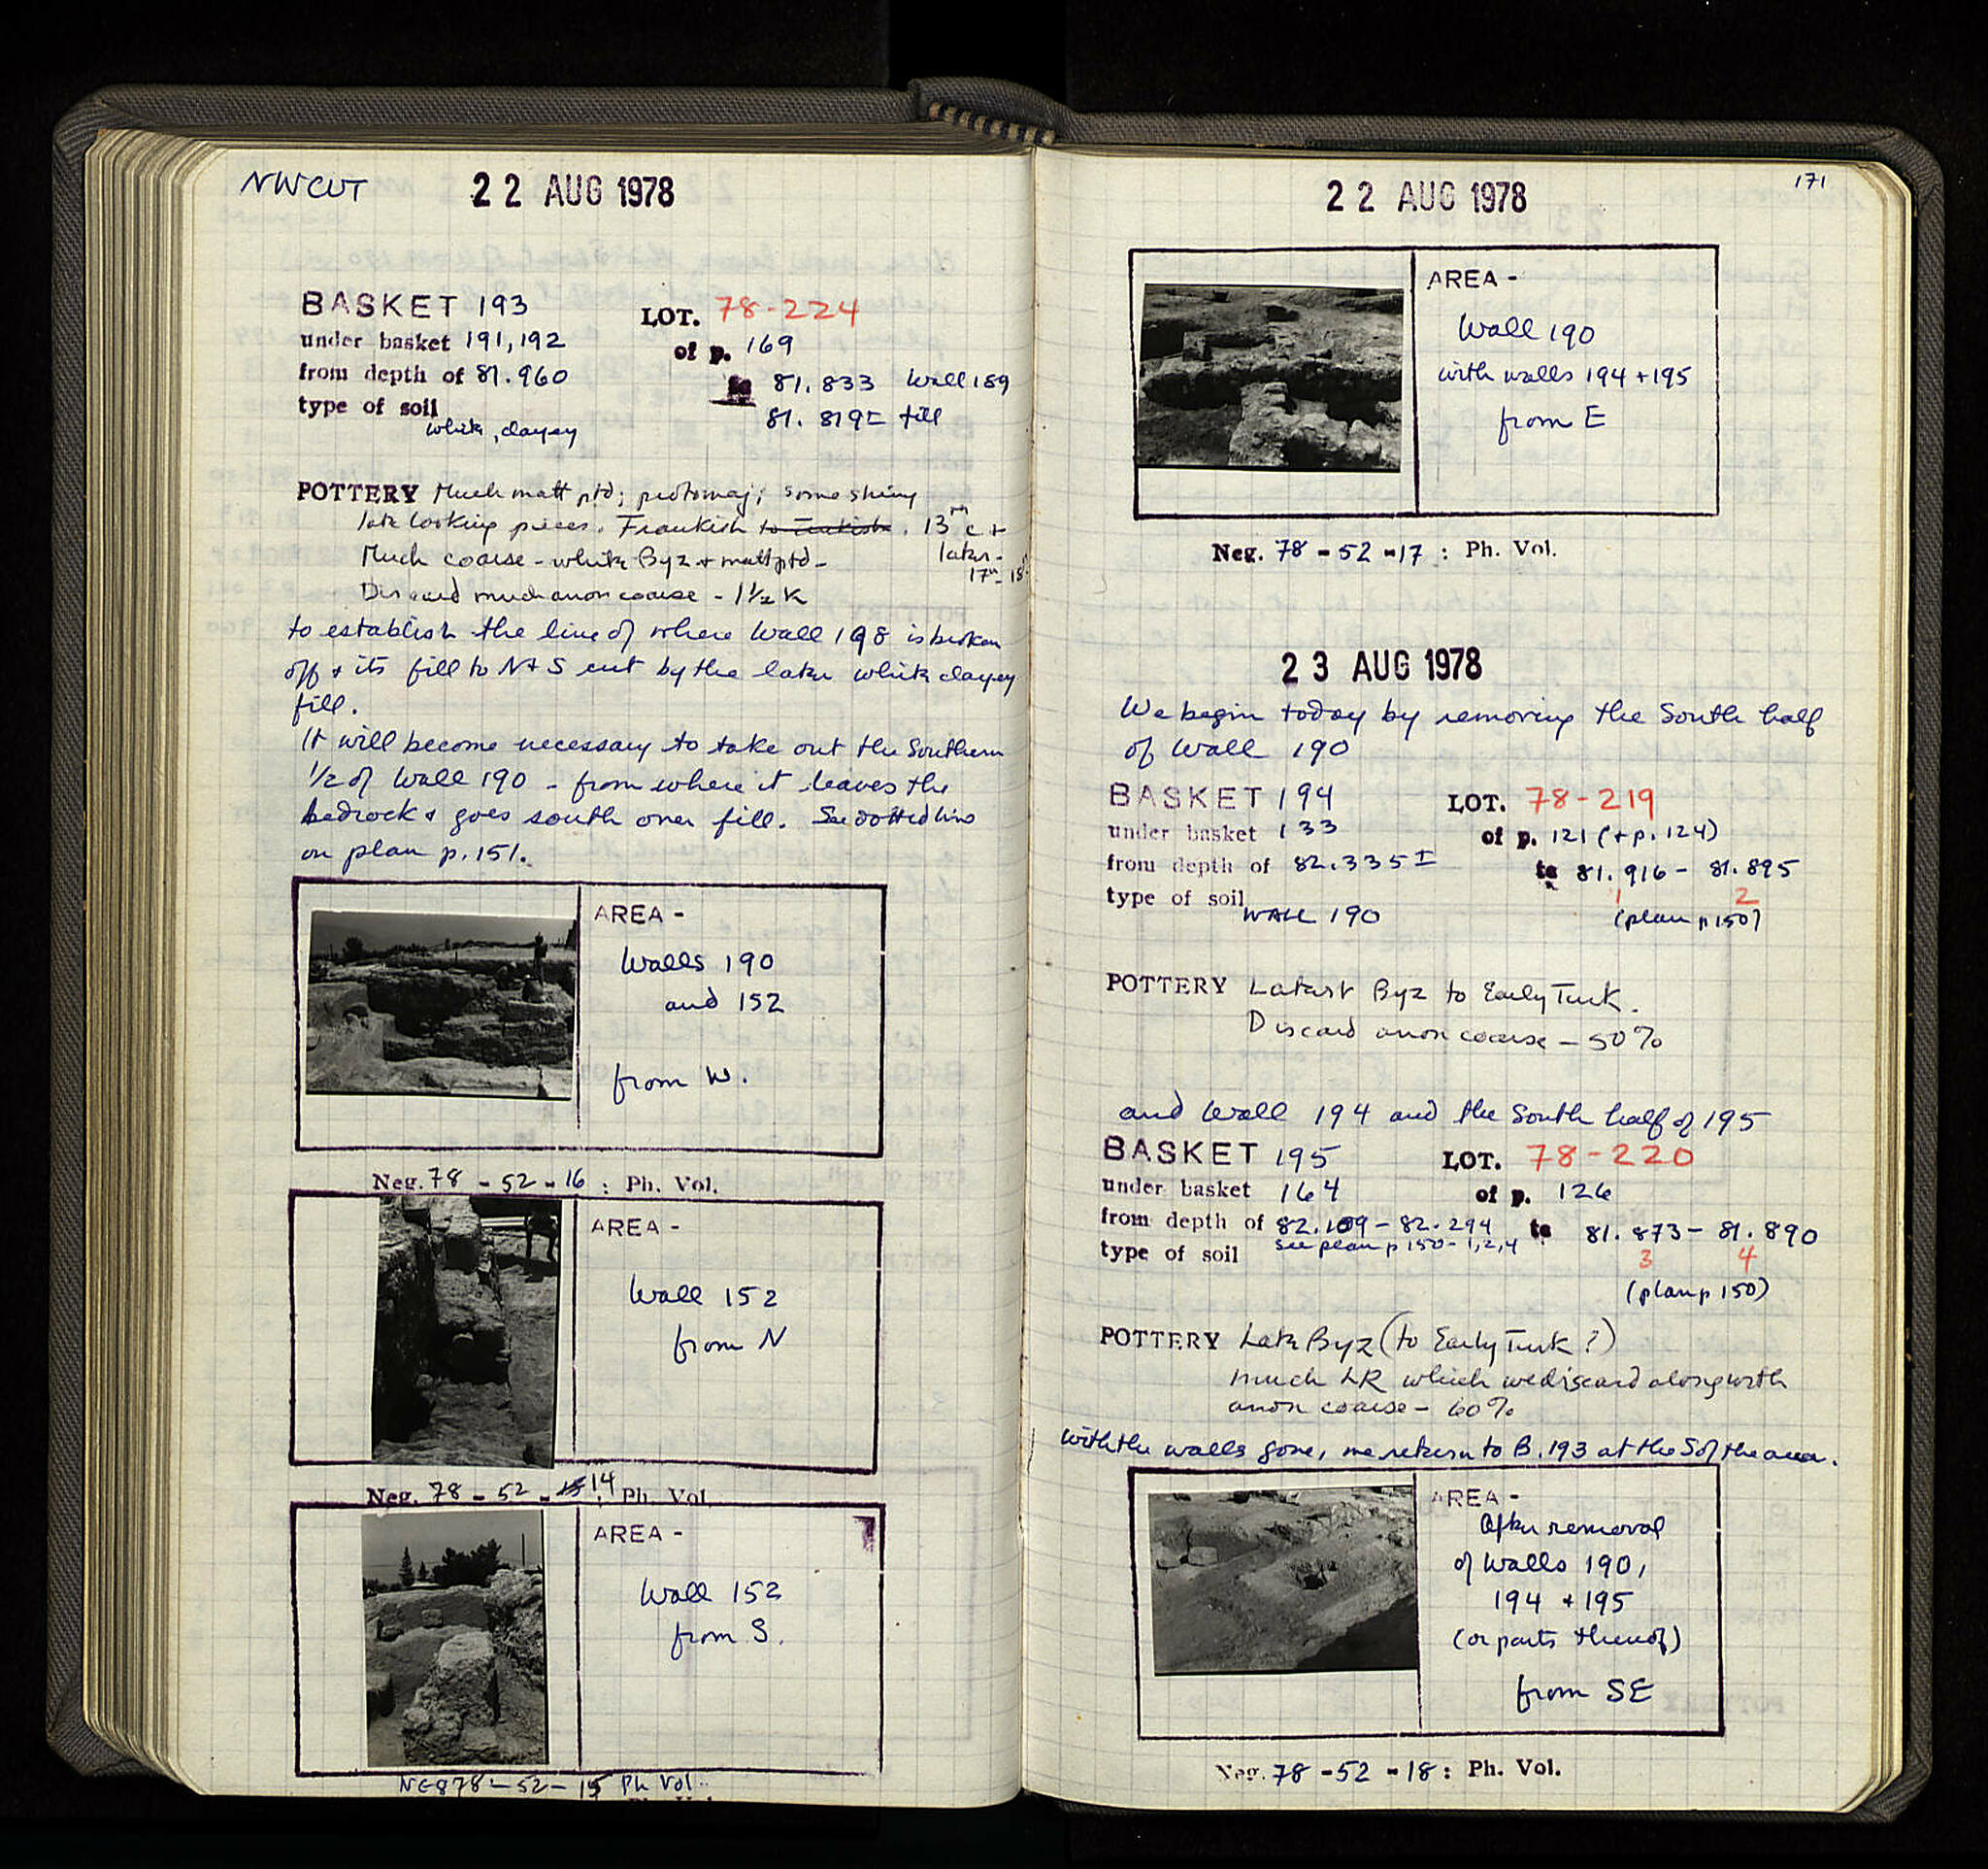 NWCUT
22 AUG 1978
BASKET 193 LOT. 78-224
under basket 191, 192 of p. 169
from depth of 81.960 to 81.833 Wall 189
type of soil 81.819± fill
white, clayey
POTTERY Much matt ptd; protomaj; some shiny
late looking pieces. Frankish to Turkish. 13th c +
Much coarse - white Byz + matt ptd - later -
17th - 18
Discard much anon coarse - 1½ K
to establish the line of where Wall 198 is broken
off + its fill to N + S cut by the later white clayey
fill.
It will become necessary to take out the Southern
½ of Wall 190 - from where it leaves the
bedrock & goes south over fill. See dotted line
on plan p. 151.
AREA -
Walls 190
and 152
from W.
Neg. 78 - 52 - 16 : Ph. Vol.
AREA -
Wall 152
from N
Neg. 78 - 52 - 15 14 : Ph. Vol.
AREA -
Wall 152
from S.
NEG 78 - 52 - 15 Ph Vol.
22 AUG 1978
171
AREA -
Wall 190
with walls 194 + 195
from E
Neg. 78 - 52 - 17 : Ph. Vol.
23 AUG 1978
We begin today by removing the South half
of Wall 190
BASKET 194 LOT. 78-219
under basket 133 of p. 121 (+ p. 124)
from depth of 82.335± to 81.916 - 81.895
1 2
type of soil WALL 190 (plan p 150)
POTTERY Latest Byz to Early Turk.
Discard anon coarse - 50%
and Wall 194 and the South half of 195
BASKET 195 LOT. 78-220
under basket 164 of p. 126
from depth of 82.109 - 82.294 to 81.873 - 81.890
type of soil see plan p 150 - 1, 2, 4 3 4
(plan p 150)
POTTERY Late Byz (to Early Turk ?)
much LR which we discard along with
anon coarse - 60%
With the walls gone, we return to B. 193 at the S of the area.
AREA -
After removal
of Walls 190,
194 + 195
(or parts thereof)
from SE
Neg. 78 - 52 - 18 : Ph. Vol.